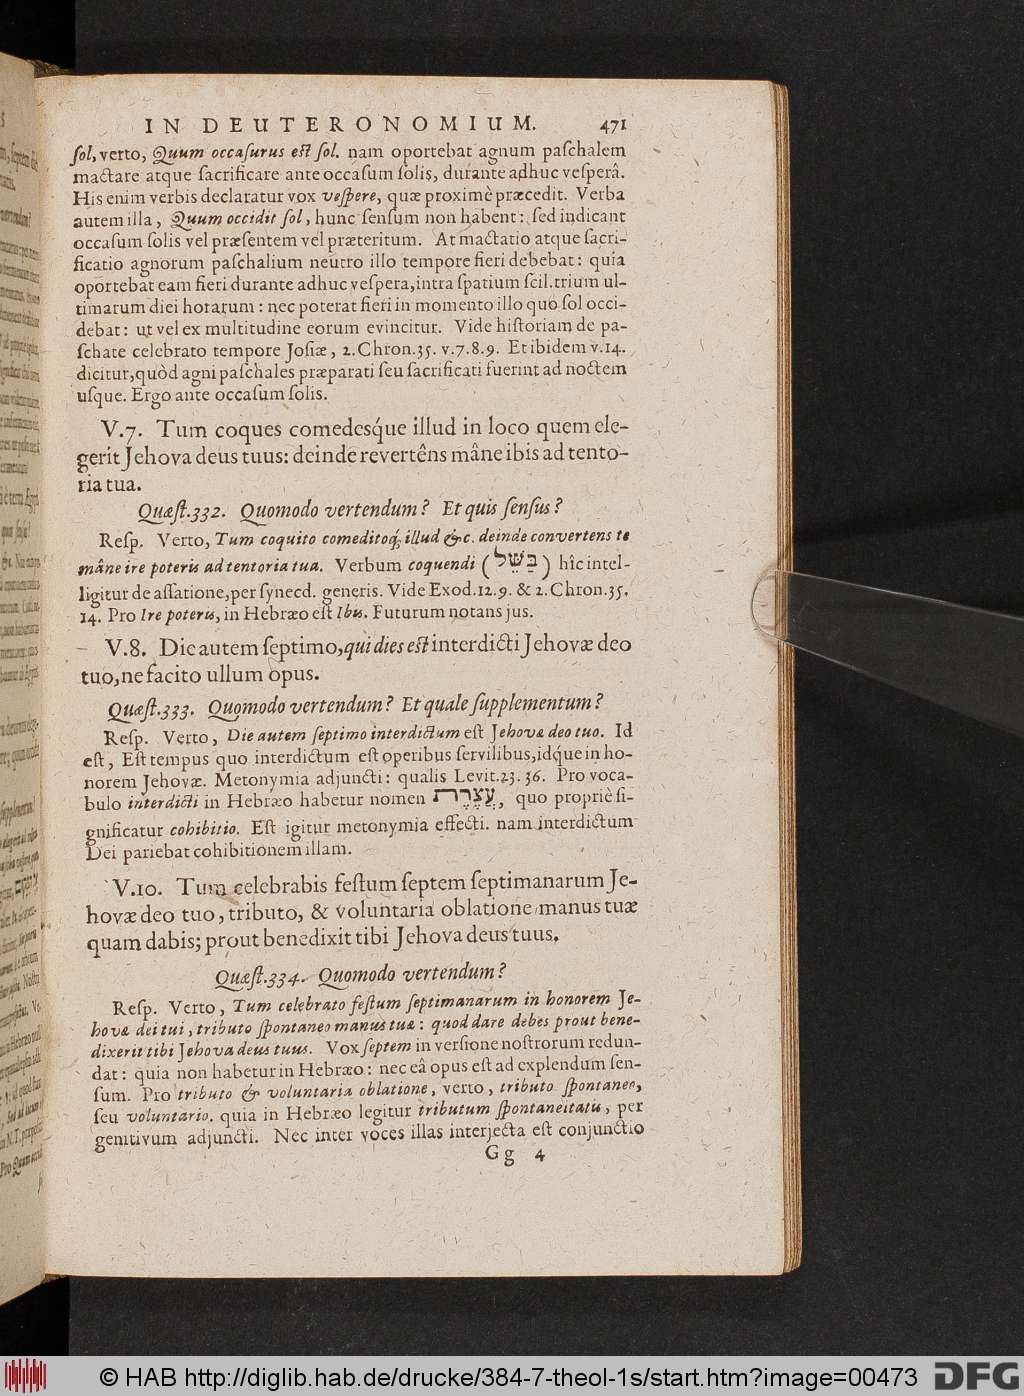 IN DEUTERONOMIUM. 471
ſol, verto, Quum occaſurus eſt ſol. nam oportebat agnum paſchalem
mactare atque ſacrificare ante occaſum ſolis, durante adhuc veſperâ.
His enim verbis declaratur vox veſpere, quæ proximè præcedit. Verba
autem illa, Quum occidit ſol, hunc ſenſum non habent: ſed indicant
occaſum ſolis vel præſentem vel præteritum. At mactatio atque ſacri-
ficatio agnorum paſchalium neutro illo tempore fieri debebat: quia
oportebat eam fieri durante adhuc veſpera, intra ſpatium ſcil. trium ul-
timarum diei horarum: nec poterat fieri in momento illo quo ſol occi-
debat: ut vel ex multitudine eorum evincitur. Vide hiſtoriam de pa-
ſchate celebrato tempore Joſiæ, 2. Chron. 35. v. 7. 8. 9. Et ibidem v. 14.
dicitur, quòd agni paſchales præparati ſeu ſacrificati fuerint ad noctem
uſque. Ergo ante occaſum ſolis.
V. 7. Tum coques comedesq́ue illud in loco quem ele-
gerit Jehova deus tuus: deinde revertêns mâne ibis ad tento-
ria tua.
Quæſt. 332. Quomodo vertendum? Et quis ſenſus?
Reſp. Verto, Tum coquito comeditoq́; illud &c. deinde convertens te
mâne ire poteris ad tentoria tua. Verbum coquendi (בַּשֵּׁל) hîc intel-
ligitur de aſſatione, per ſynecd. generis. Vide Exod. 12. 9. & 2. Chron. 35.
14. Pro Ire poteris, in Hebræo eſt Ibis. Futurum notans jus.
V. 8. Die autem ſeptimo, qui dies eſt interdicti Jehovæ deo
tuo, ne facito ullum opus.
Quæſt. 333. Quomodo vertendum? Et quale ſupplementum?
Reſp. Verto, Die autem ſeptimo interdictum eſt Jehovæ deo tuo. Id
eſt, Eſt tempus quo interdictum eſt operibus ſervilibus, idq́ue in ho-
norem Jehovæ. Metonymia adjuncti: qualis Levit. 23. 36. Pro voca-
bulo interdicti in Hebræo habetur nomen עֲצֶרֶת, quo propriè ſi-
gnificatur cohibitio. Eſt igitur metonymia effecti. nam interdictum
Dei pariebat cohibitionem illam.
V. 10. Tum celebrabis feſtum ſeptem ſeptimanarum Je-
hovæ deo tuo, tributo, & voluntaria oblatione manus tuæ
quam dabis; prout benedixit tibi Jehova deus tuus.
Quæſt. 334. Quomodo vertendum?
Reſp. Verto, Tum celebrato feſtum ſeptimanarum in honorem Je-
hovæ dei tui, tributo ſpontaneo manus tuæ: quod dare debes prout bene-
dixerit tibi Jehova deus tuus. Vox ſeptem in verſione noſtrorum redun-
dat: quia non habetur in Hebræo: nec eâ opus eſt ad explendum ſen-
ſum. Pro tributo & voluntaria oblatione, verto, tributo ſpontaneo,
ſeu voluntario. quia in Hebræo legitur tributum ſpontaneitatis, per
genitivum adjuncti. Nec inter voces illas interjecta eſt conjunctio
Gg 4
© HAB http://diglib.hab.de/drucke/384-7-theol-1s/start.htm?image=00473
DFG